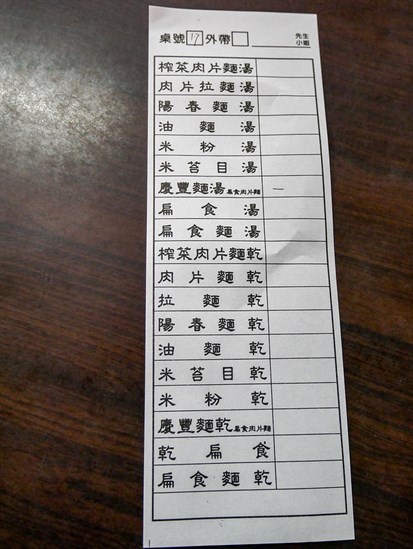 桌號 17 外帶 先生
小姐
榨菜肉片麵湯
肉片拉麵湯
陽春麵湯
油麵湯
米粉湯
米苔目湯
慶豐麵湯扁食肉片麵 一
扁食湯
扁食麵湯
榨菜肉片麵乾
肉片麵乾
拉麵乾
陽春麵乾
油麵乾
米苔目乾
米粉乾
慶豐麵乾扁食肉片麵
乾扁食
扁食麵乾